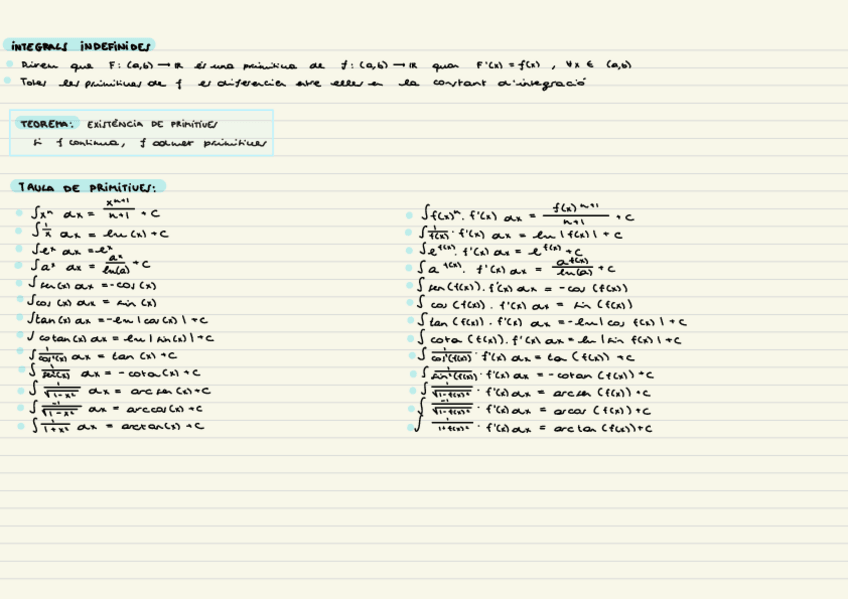 INTEGRALS INDEFINIDES
Direm que F: (a,b) → ℝ és una primitiva de f: (a,b) → ℝ quan F'(x) = f(x), ∀x ∈ (a,b)
Totes les primitives de f es diferencien entre elles en la constant d'integració
TEOREMA: EXISTÈNCIA DE PRIMITIVES
Si f contínua, f admet primitives
TAULA DE PRIMITIVES:
∫xⁿ dx = xⁿ⁺¹/(n+1) + C
∫1/x dx = ln(x) + C
∫eˣ dx = eˣ
∫aˣ dx = aˣ/ln(a) + C
∫sen(x) dx = -cos(x)
∫cos(x) dx = sin(x)
∫tan(x) dx = -ln|cos(x)| + C
∫cotan(x) dx = ln|sin(x)| + C
∫1/cos²(x) dx = tan(x) + C
∫1/sin²(x) dx = -cotan(x) + C
∫1/√(1-x²) dx = arcsen(x) + C
∫-1/√(1-x²) dx = arccos(x) + C
∫1/(1+x²) dx = arctan(x) + C
∫f(x)ⁿ · f'(x) dx = f(x)ⁿ⁺¹/(n+1) + C
∫1/f(x) · f'(x) dx = ln|f(x)| + C
∫e^f(x) · f'(x) dx = e^f(x) + C
∫a^f(x) · f'(x) dx = a^f(x)/ln(a) + C
∫sen(f(x)) · f'(x) dx = -cos(f(x))
∫cos(f(x)) · f'(x) dx = sin(f(x))
∫tan(f(x)) · f'(x) dx = -ln|cos f(x)| + C
∫cota(f(x)) · f'(x) dx = ln|sin f(x)| + C
∫1/cos²(f(x)) · f'(x) dx = ta(f(x)) + C
∫1/sin²(f(x)) · f'(x) dx = -cotan(f(x)) + C
∫1/√(1-f(x)²) · f'(x) dx = arcsen(f(x)) + C
∫-1/√(1-f(x)²) · f'(x) dx = arcos(f(x)) + C
∫1/(1+f(x)²) · f'(x) dx = arctan(f(x)) + C